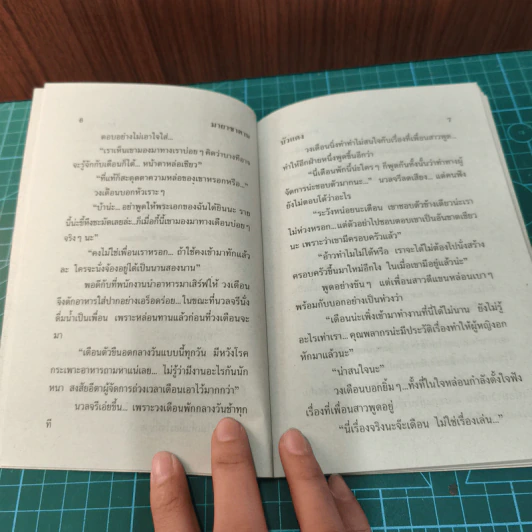 ๖
มายาซาตาน
ตอบอย่างไม่เอาใจใส่...
"เราเห็นเขามองมาทางเราบ่อยๆ คิดว่าบางทีอาจ
จะรู้จักกับเดือนก็ได้... หน้าตาหล่อเชียว"
"ที่แท้ก็สะดุดตาความหล่อของเขาหรอกหรือ..."
วงเดือนบอกหัวเราะๆ
"บ้าน่ะ...อย่าพูดให้พระเอกของฉันได้ยินนะ ราย
นี้น่ะขี้หึงชะมัดเลยล่ะ..ก็เมื่อกี้นี้เขามองมาทางเดือนบ่อยๆ
จริงๆ นะ"
"คงไม่ใช่เพื่อนเราหรอก... ถ้าใช่คงเข้ามาทักแล้ว
ละ ใครจะนั่งจ้องอยู่ได้เป็นนานสองนาน"
พอดีกับที่พนักงานนำอาหารมาเสิร์ฟให้ วงเดือน
จึงตักอาหารใส่ปากอย่างเอร็ดอร่อย...ในขณะที่นวลจรีนั่ง
ดื่มน้ำเป็นเพื่อน เพราะหล่อนทานแล้วก่อนที่วงเดือนจะ
มา
"เดือนตัวขึ้นอดกลางวันแบบนี้ทุกวัน มีหวังโรค
กระเพาะอาหารถามหาแน่เลย... ไม่รู้ว่ามีงานอะไรกันนัก
หนา สงสัยอีตาผู้จัดการถ่วงเวลาเดือนเอาไว้มากกว่า"
นวลจรีเอ่ยขึ้น... เพราะวงเดือนพักกลางวันช้าทุก
ที
บัวแดง
๗
วงเดือนนิ่งทำท่าไม่สนใจกับเรื่องที่เพื่อนสาวพูด...
ทำให้อีกฝ่ายหนึ่งพูดขึ้นอีกว่า
"นี่เดือนพักนี้น่ะใครๆ ก็พูดกันทั้งนั้นว่าท่าทางผู้
จัดการน่ะชอบตัวมากนะ..." นวลจรีลดเสียง... แต่คนฟัง
ยังไม่ตอบได้ว่าอะไร
"ระวังหน่อยนะเดือน เขาชอบตัวข้างเดียวน่ะเรา
ไม่ห่วงหรอก...แต่ตัวอย่าไปชอบตอบเขาเป็นอันขาดเชียว
นะ เพราะว่าเขามีครอบครัวแล้ว"
"อ้าวทำไมไม่ได้หรือ เราจะได้ไม่ต้องไปนั่งสร้าง
ครอบครัวขึ้นมาใหม่อีกไง ในเมื่อเขามีอยู่แล้วน่ะ"
พูดอย่างขันๆ แต่เพื่อนสาวตีแขนหล่อนเบาๆ
พร้อมกับบอกอย่างเป็นห่วงว่า
"เดือนน่ะเพิ่งเข้ามาทำงานที่นี่ได้ไม่นาน ยังไม่รู้
อะไรเท่าเรา... คุณพลากรน่ะมีประวัติเรื่องทำให้ผู้หญิงอก
หักมาแล้วนะ"
"น่าสนใจนะ"
วงเดือนบอกยิ้มๆ...ทั้งที่ในใจหล่อนกำลังตั้งใจฟัง
เรื่องที่เพื่อนสาวพูดอยู่
"นี่เรื่องจริงนะจ๊ะเดือน ไม่ใช่เรื่องเล่น..."